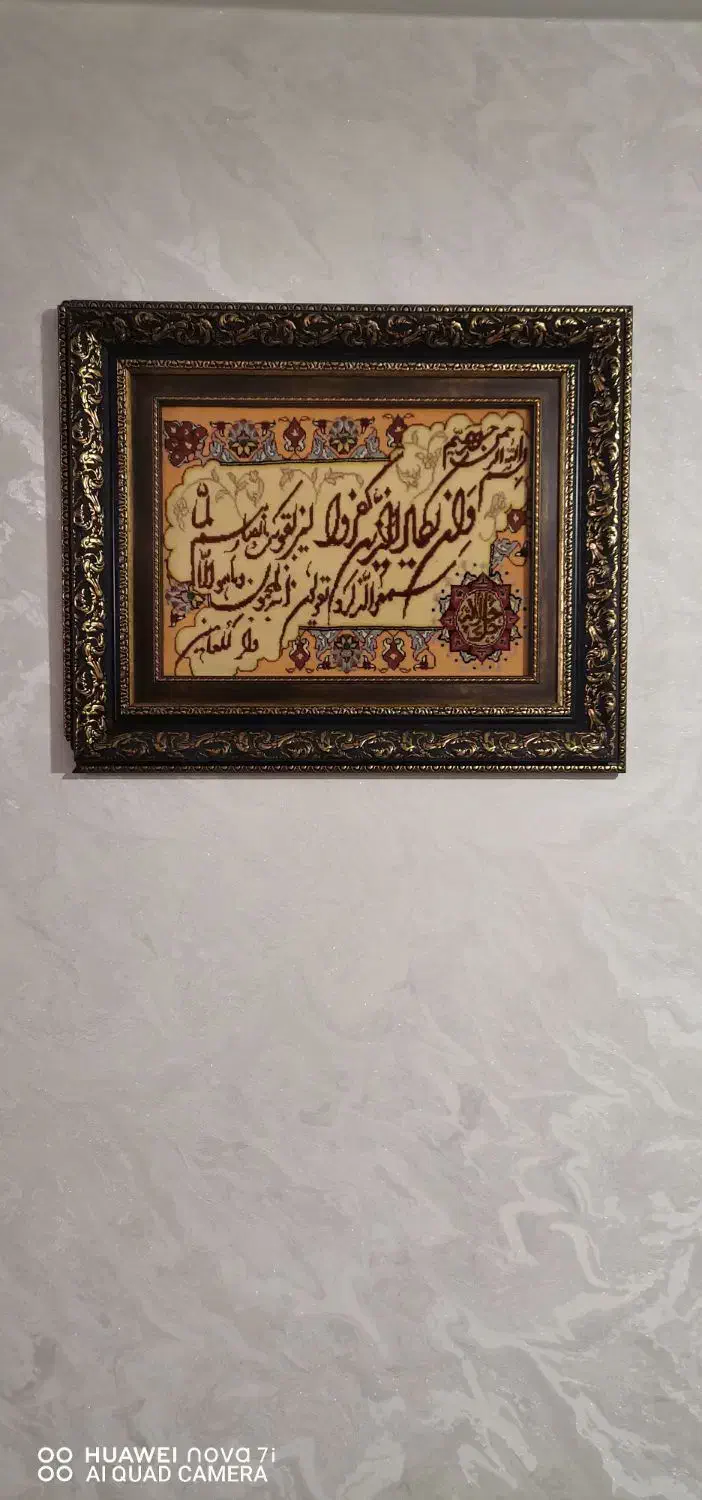 بسم الله الرحمن الرحیم
وَان یکاد الذین کفروا لیزلقونک بابصارهم لمّا
سمعوا الذکر و یقولون انه لمجنون و ما هو الّا
ذکر للعالمین
HUAWEI nova 7i
AI QUAD CAMERA